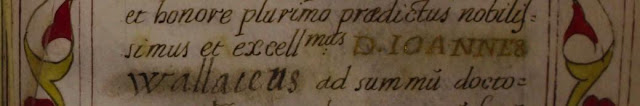 et honore plurimo prædictus nobilis-
simus et excellmus D. IOANNES
Wallaicus ad summũ docto-